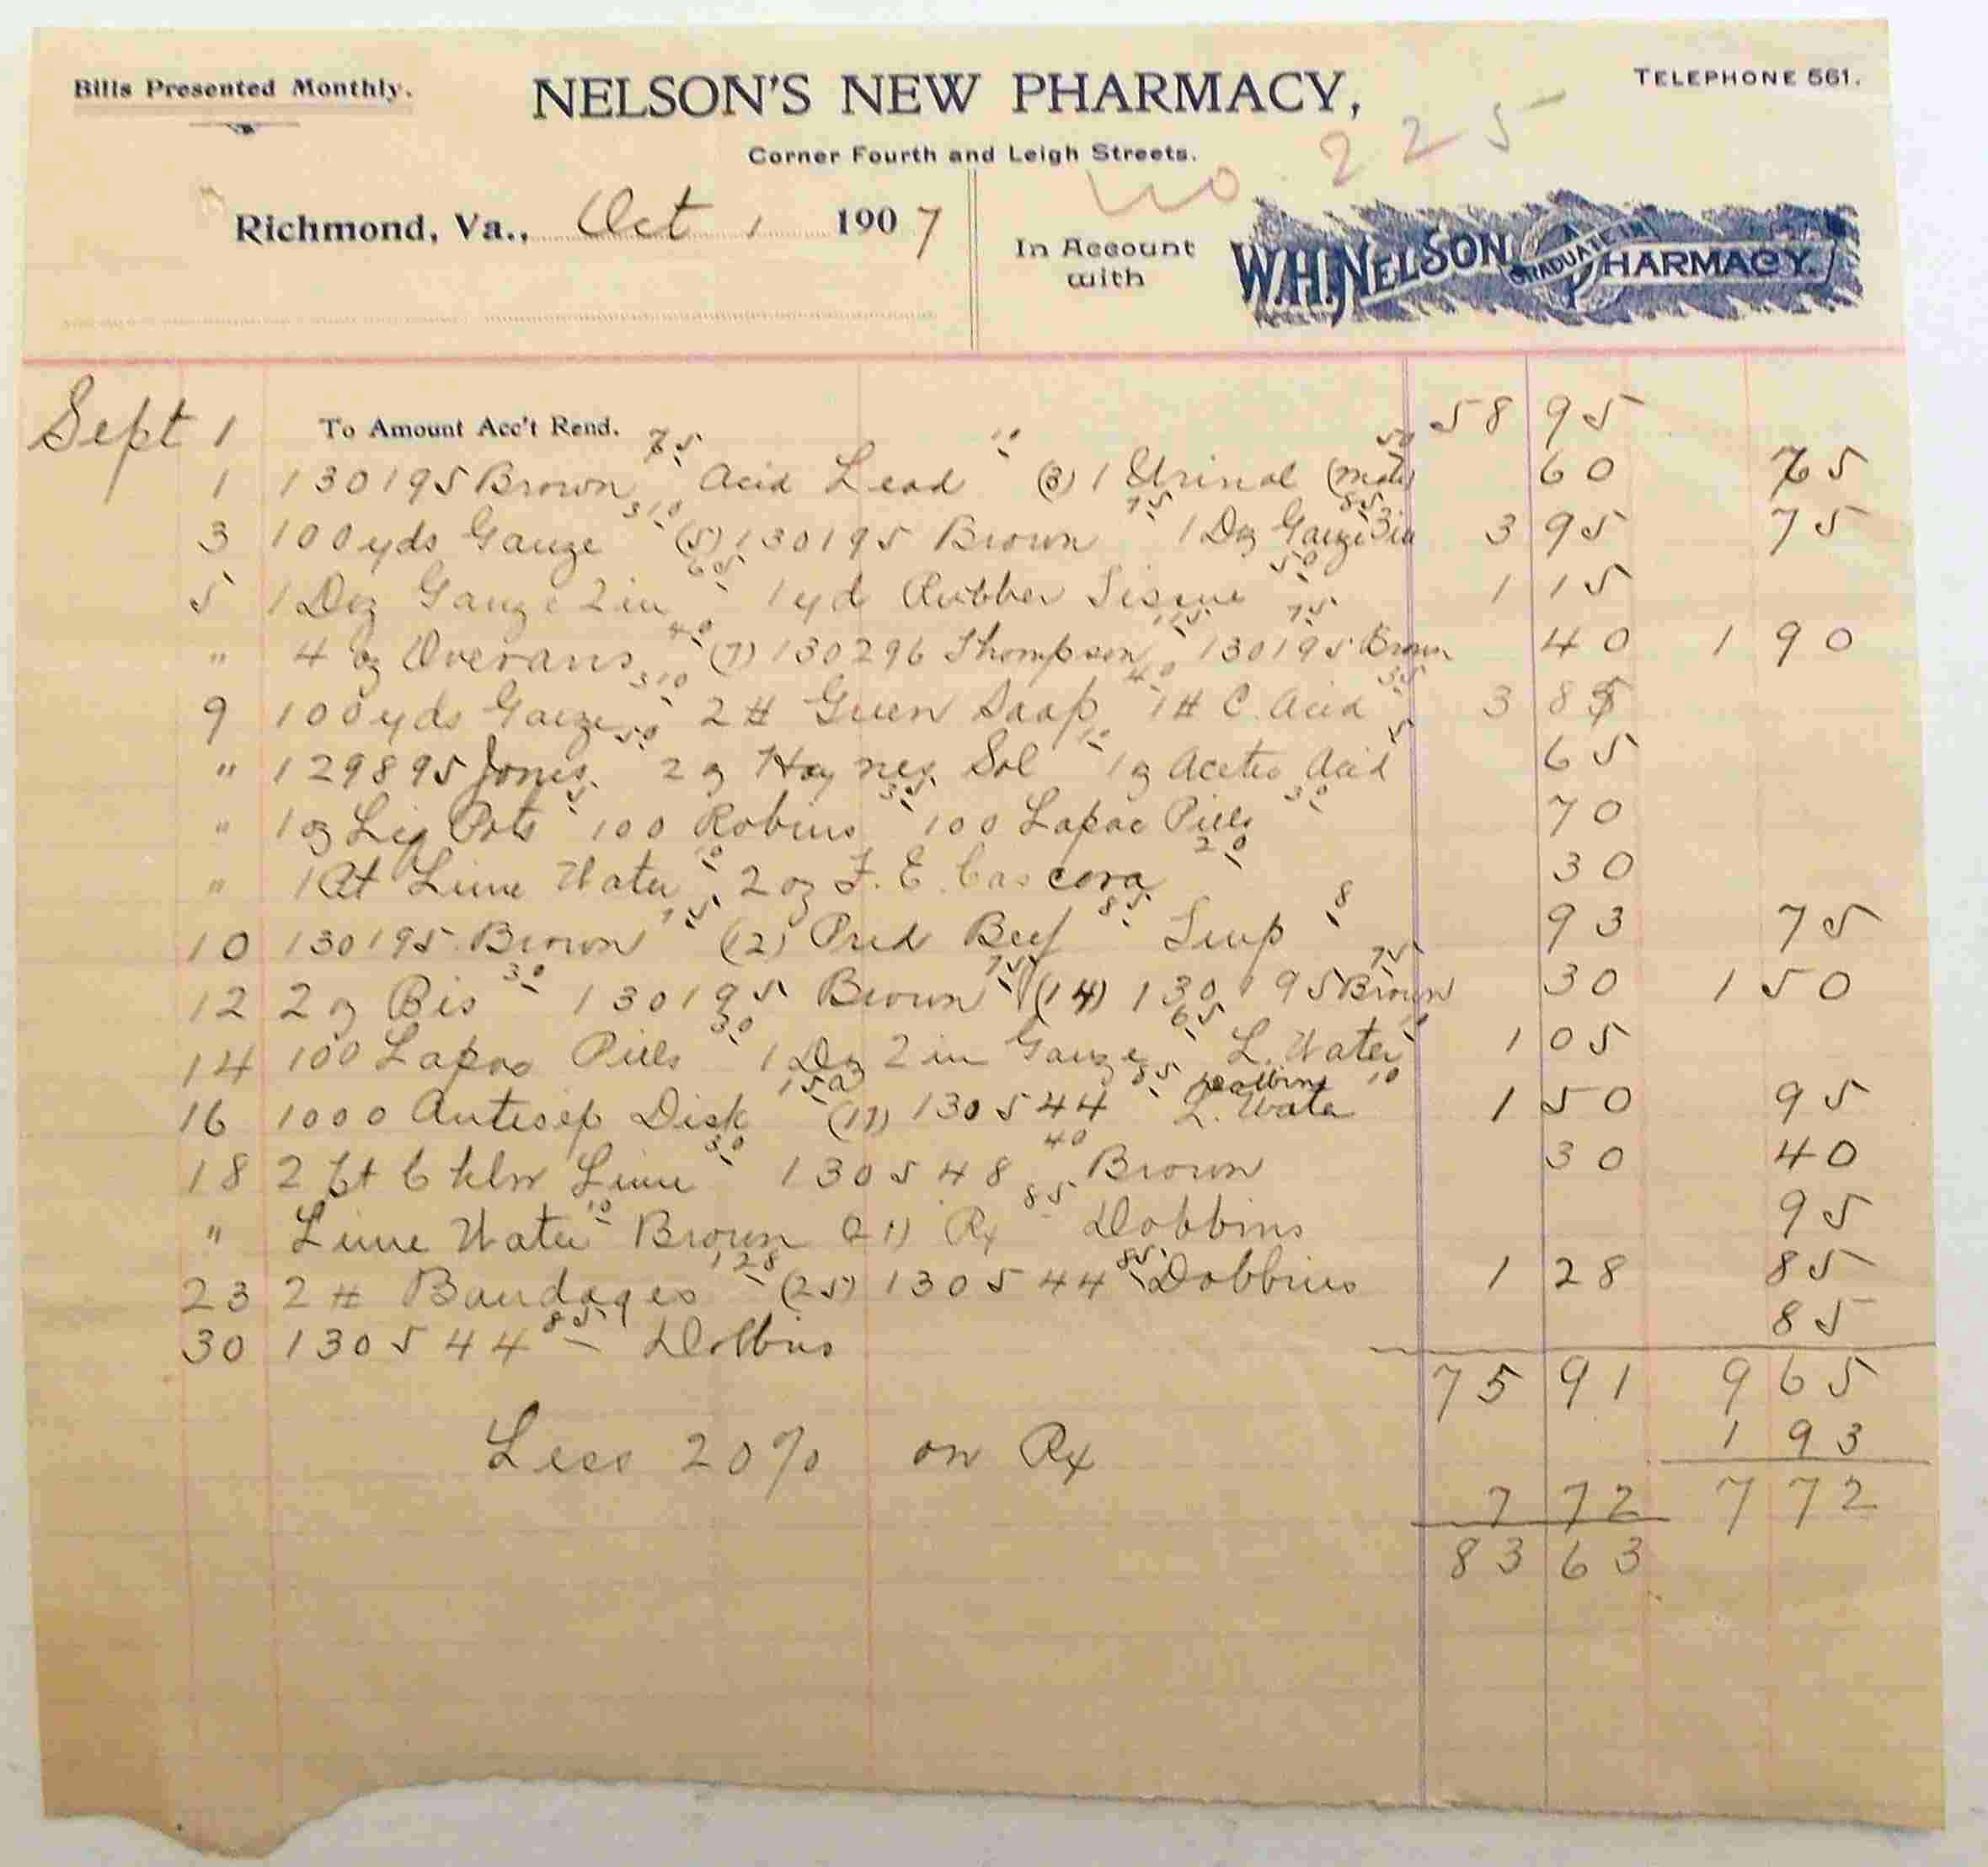 Bills Presented Monthly.
NELSON'S NEW PHARMACY,
TELEPHONE 561.
Corner Fourth and Leigh Streets.
No. 225
Richmond, Va., Oct 1 1907
In Account with
W.H. NELSON GRADUATE IN PHARMACY.
Sept 1 To Amount Acc't Rend. 58 95
1 130195 Brown 75 Acid Lead 10 (3) 1 Urinal (male) 50 60 75
3 100 yds Gauze 310 (5) 130195 Brown 75 1 Doz Gauze 3 in 85 3 95 75
5 1 Doz Gauze 2 in 65 1 yd Rubber Tissue 50 1 15
" 4 oz 40 (7) 130296 Thompson 115 130195 Brown 75 40 1 90
9 100 yds Gauze 310 2 # Green Soap 40 1 # C. Acid 35 3 85
" 129895 Jones 50 2 oz Haynes Sol 10 1 oz Acetic Acid 5 65
" 1 oz Liq Pots 5 100 Robins 35 100 Lapac Pills 30 70
" 1 Qt Lime Water 10 2 oz F. E. Cascora 20 30
10 130195 Brown 75 (12) Pred Beef 85 8 93 75
12 2 oz Bis 30 130195 Brown 75 (14) 130195 Brown 75 30 1 50
14 100 Lapac Pills 30 1 Doz 2 in Gauze 65 L. Water 10 1 05
16 1000 Antisep Disk 150 (17) 130544 85 Dobbins L. Wate 10 1 50 95
18 2 Chlor Lime 30 130548 40 Brown 30 40
" Lime Water 10 Brown (21) Rx 85 Dobbins 95
23 2 # Bandages 128 (25) 130544 85 Dobbins 1 28 85
30 130544 85 Dobbins 85
75 91 9 65
Less 20% on Rx 1 93
7 72 7 72
83 63